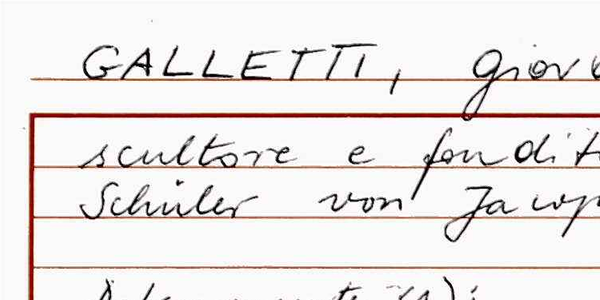 GALLETTI, Giov
scultore e fondit
Schüler von Jacop